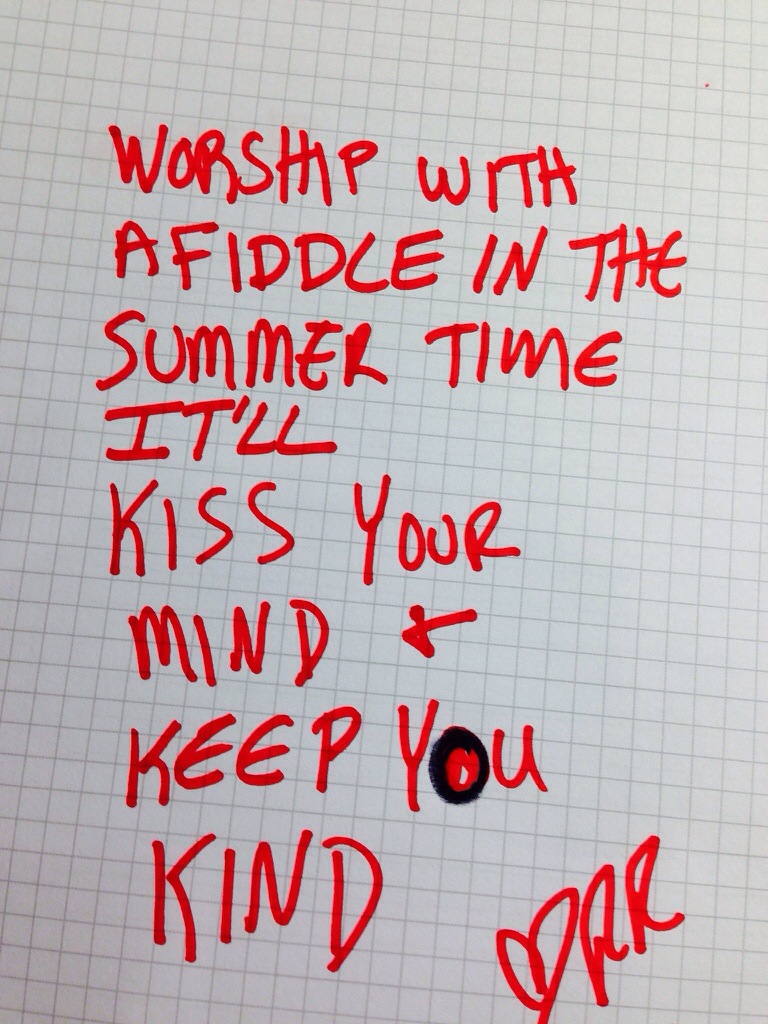 WORSHIP WITH
A FIDDLE IN THE
SUMMER TIME
IT'LL
KISS YOUR
MIND +
KEEP YOU
KIND
♡RR